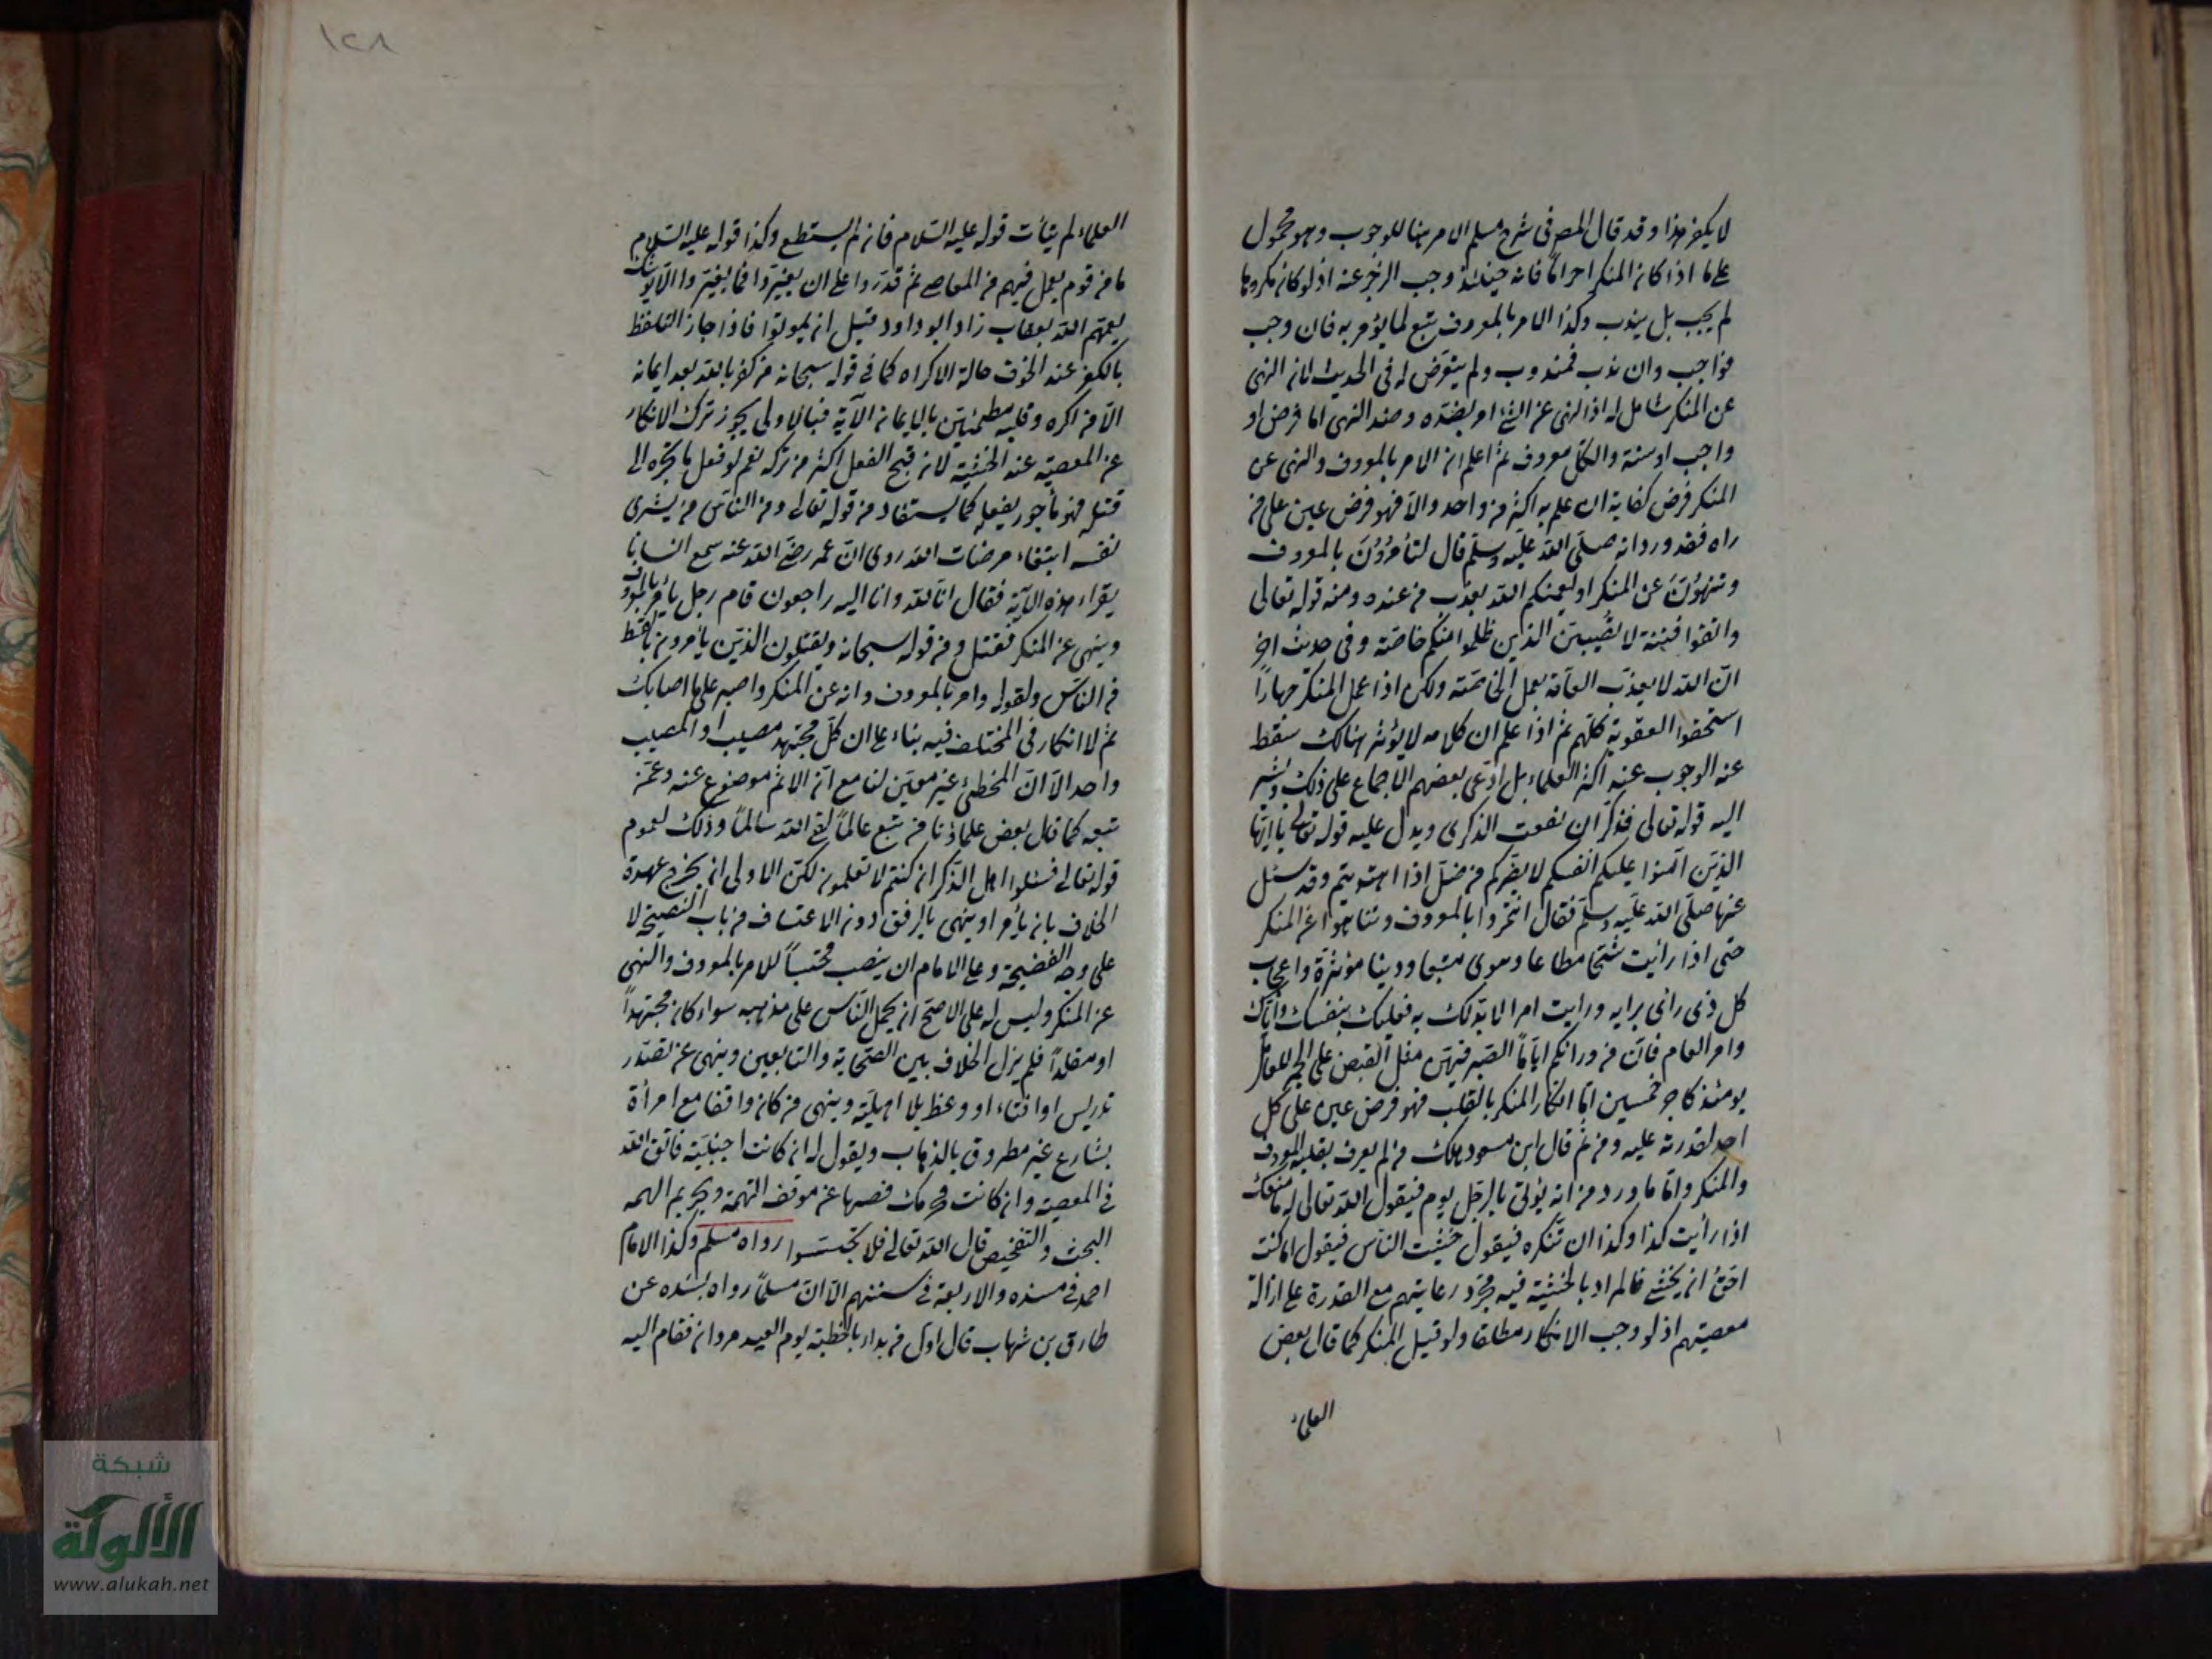 لا يكفر هذا وقد قال المص في شرح مسلم الامر هنا للوجوب وهو محمول
على ما اذا كان المنكر حراماً فانه حينئذ وجب الزجر عنه اذ لو كان مكروها
لم يجب بل يندب وكذا الامر بالمعروف تبع لما يؤمر به فان وجب
فواجب وان ندب فمندوب ولم يتعرض له في الحديث لان النهى
عن المنكر شامل له اذ النهى عن الشئ امر بضده وضد النهى اما فرض او
واجب او سنة والكل معروف ثم اعلم ان الامر بالمعروف والنهى عن
المنكر فرض كفاية ان علم به اكثر من واحد والا فهو فرض عين على من
راه فقد ورد انه صلى الله عليه وسلم قال لتأمرون بالمعروف
وتنهون عن المنكر او ليعمنكم الله بعذاب من عنده ومنه قوله تعالى
واتقوا فتنة لا تصيبن الذين ظلموا منكم خاصة وفى حديث اخر
ان الله لا يعذب العامة بعمل الخاصة ولكن اذا عمل المنكر جهاراً
استحقوا العقوبة كلهم ثم اذا علم ان كلامه لا يؤثر هنالك سقط
عنه الوجوب عند اكثر العلماء بل ادعى بعضهم الاجماع على ذلك ويشير
اليه قوله تعالى فذكر ان نفعت الذكرى ويدل عليه قوله تعالى يا ايها
الذين آمنوا عليكم انفسكم لا يضركم من ضل اذا اهتديتم وقد سئل
عنها صلى الله عليه وسلم فقال ائتمروا بالمعروف وتناهوا عن المنكر
حتى اذا رأيت شحا مطاعا وهوى متبعا ودنيا مؤثرة واعجاب
كل ذى راى برايه ورايت امرا لا بد لك به فعليك بنفسك واياك
وامر العام فان من ورائكم اياماً الصبر فيهن مثل القبض على الجمر للعامل
يومئذ كاجر خمسين اما انكار المنكر بالقلب فهو فرض عين على كل
احد لقدرته عليه ومن ثم قال ابن مسعود هلك من لم يعرف بقلبه المعروف
والمنكر واما ما ورد من انه يؤتى بالرجل يوم فيقول الله تعالى له ما منعك
اذا رأيت كذا وكذا ان تنكره فيقول خشيت الناس فيقول اما كنت
احق ان يخشى فالمراد بالخشية فيه مجرد رعايتهم مع القدرة على ازالة
معصيتهم اذ لو وجب الانكار مطلقا ولو قتيل المنكر كما قال بعض
العلماء
١٢٨
العلماء لم يتأت قوله عليه السلام فان لم يستطع وكذا قوله عليه السلام
ما من قوم يعمل فيهم من المعاصي ثم قدروا على ان يغيروا فما يغيروا الا يوشك
يعمهم الله بعقاب زاد ابو داود قبل ان يموتوا فاذا جاز التلفظ
بالكفر عند الخوف حالة الاكراه كما في قوله سبحانه من كفر بالله بعد ايمانه
الا من اكره وقلبه مطمئن بالايمان الآية فبالاولى يجوز ترك الانكار
عن المعصية عند الخشية لان قبح الفعل اكثر من تركه نعم لو فعل ما يجره الى
قتله فهو مأجور بفعله كما يستفاد من قوله تعالى ومن الناس من يشرى
نفسه ابتغاء مرضات الله روى ان عمر رضي الله عنه سمع انسانا
يقراء هذه الآية فقال انا لله وانا اليه راجعون قام رجل يأمر بالمعروف
وينهى عن المنكر فقتل ومن قوله سبحانه ويقتلون الذين يأمرون بالقسط
من الناس ولقوله وامر بالمعروف وانه عن المنكر واصبر على ما اصابك
ثم لا انكار في المختلف فيه بناء على ان كل مجتهد مصيب او المصيب
واحد الا ان المخطئ غير معين لنا مع ان الاثم موضوع عنه وعمن
تبعه كما قال بعض علماؤنا من تبع عالماً لقي الله سالماً وذلك لعموم
قوله تعالى فسئلوا اهل الذكر ان كنتم لا تعلمون لكن الاولى ان يخرج عهدة
الخلاف بان يأمر او ينهى بالرفق دون الاعتساف من باب النصيحة لا
على وجه الفضيحة وعلى الامام ان ينصب محتسباً للامر بالمعروف والنهى
عن المنكر وليس له على الاصح ان يحمل الناس على مذهبه سواء كان مجتهداً
او مقلداً فلم يزل الخلاف بين الصحابة والتابعين وينهى عن تصدر
تدريس او افتاء او وعظ بلا اهلية وينهى من كان واقفا مع امرأة
بشارع غير مطروق بالذهاب ويقول له ان كانت اجنبية فاتق الله
في المعصية وان كانت محرمك فصنها عن موقف التهمة ويحرم
البحث والتفحيص قال الله تعالى فلا تجسسوا رواه مسلم وكذا الامام
احمد في مسنده والاربعة في سننهم الا ان مسلماً رواه بسنده عن
طارق بن شهاب قال اول من بداء بالخطبة يوم العيد مروان فقام اليه
شبكة
الألوكة
www.alukah.net